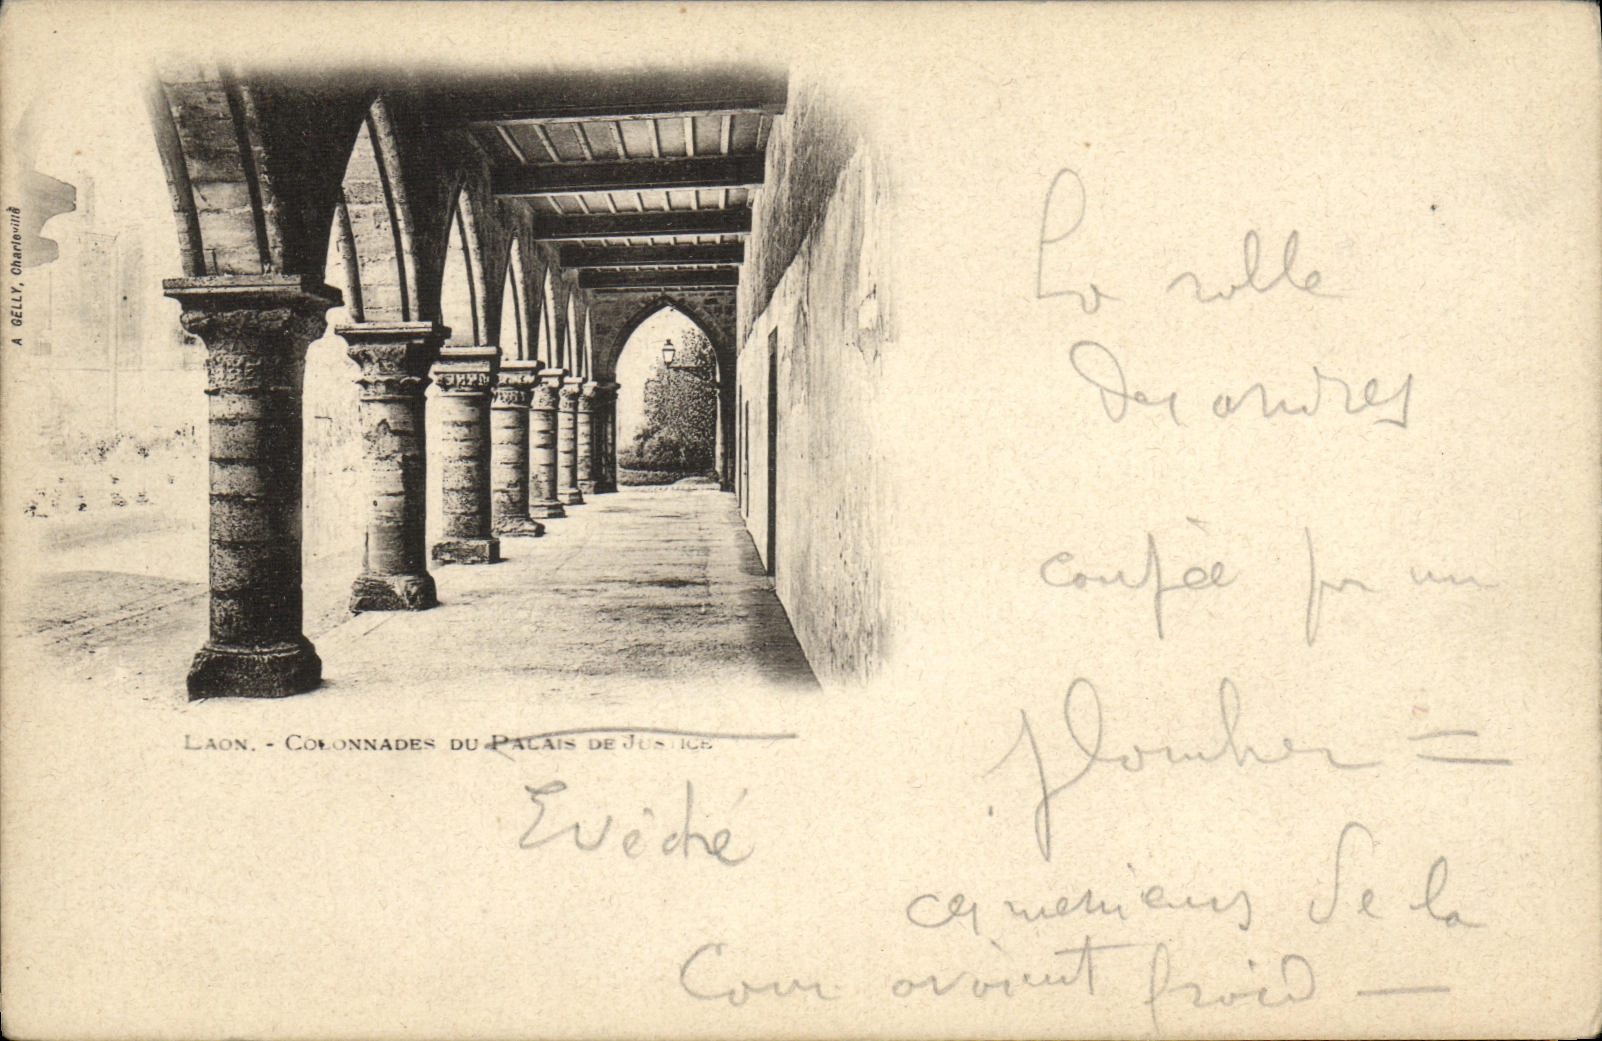 A GELLY, Charleville
LAON. - COLONNADES DU PALAIS DE JUSTICE
Evêché
La salle
des
coupée par un
plancher =
ces messieurs de la
Cour avaient froid —